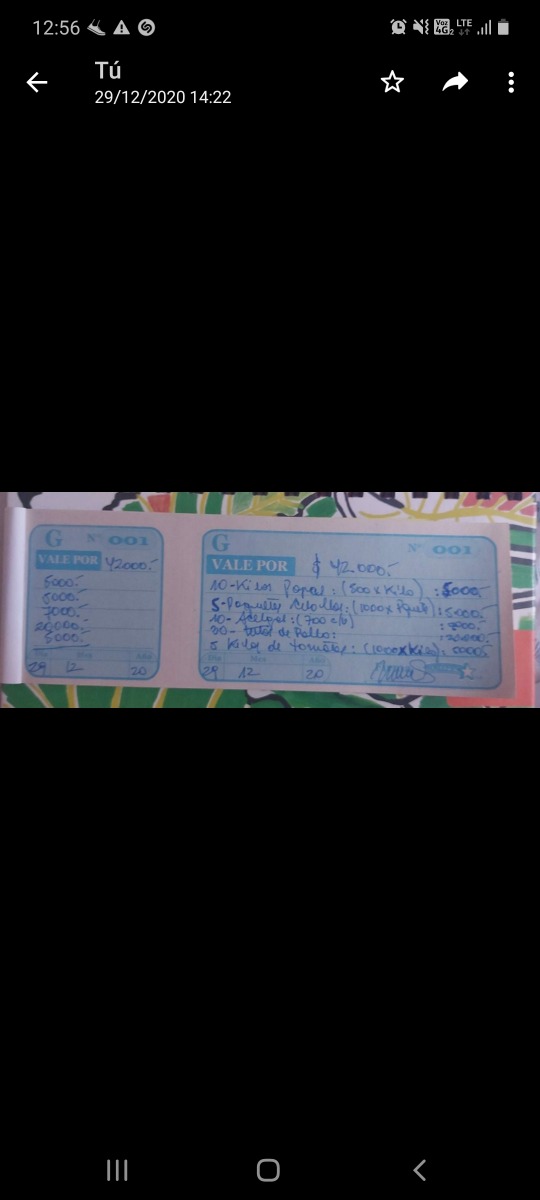 12:56
Voz 4G2 LTE
Tú
29/12/2020 14:22
G Nº 001
VALE POR 42000.-
5000.-
5000.-
7000.-
20000.-
5000.-
Día Mes Año
29 12 20
G Nº 001
VALE POR $ 42000.-
10-Kilos Papas: (500 x Kilo) : 5000.-
5-Paquetes Cebollas: (1000 x Paquete) : 5000.-
10- Acelgas: (700 c/u) : 7000.-
30- de Pollo: : 20000.-
5 Kilos de tomates: (1000xKilo): 0000.-
Día Mes Año
29 12 20